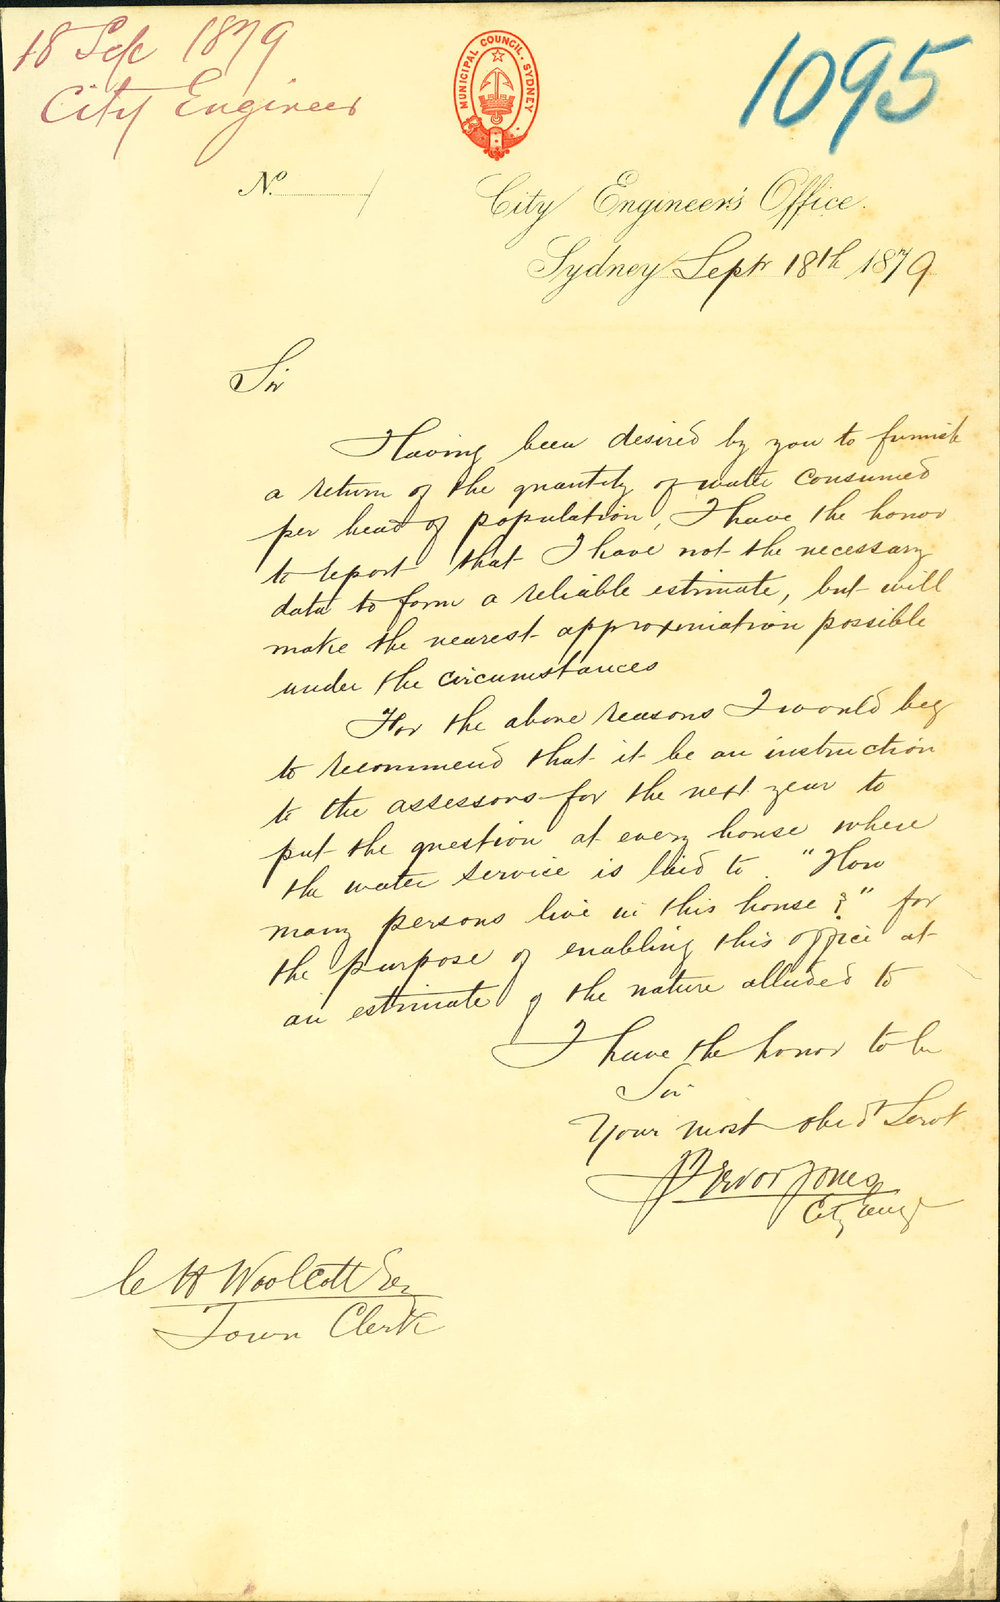 18 Sep 1879
City Engineer
1095
MUNICIPAL COUNCIL. SYDNEY
No.
City Engineer's Office.
Sydney Septr 18th 1879
Sir
Having been desired by you to furnish
a return of the quantity of water consumed
per head of population, I have the honor
to report that I have not the necessary
data to form a reliable estimate, but will
make the nearest approximation possible
under the circumstances
For the above reasons I would beg
to recommend that it be an instruction
to the assessors for the next year to
put the question at every house where
the water service is laid to. "How
many persons live in this house?" for
the purpose of enabling this office at
an estimate of the nature alluded to
I have the honor to be
Sir
Your most obedt Servt
Trevor Jones
City Engr
C H Woolcott Esq
Town Clerk